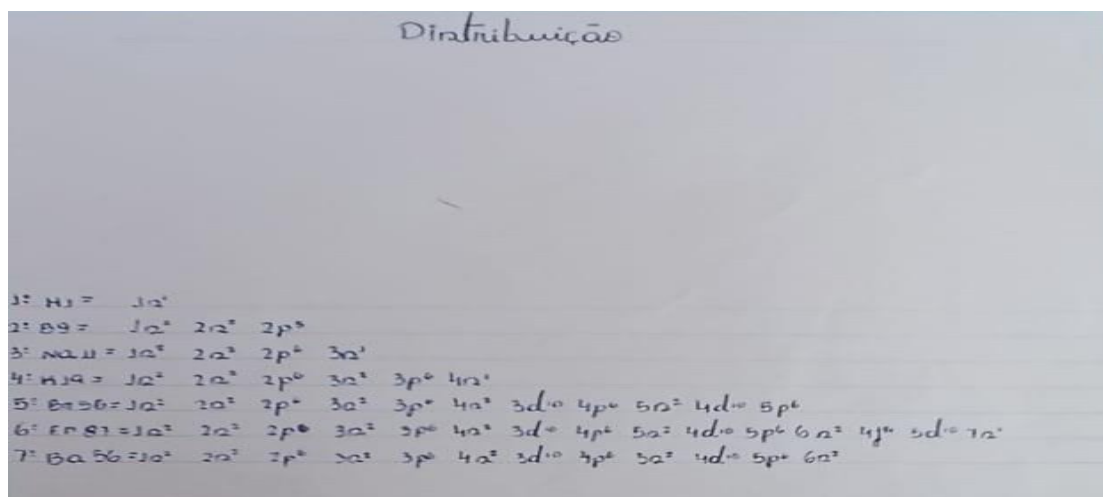 Distribuição
1º H1 = 1s¹
2º B9 = 1s² 2s² 2p⁵
3º Na11 = 1s² 2s² 2p⁶ 3s¹
4º K19 = 1s² 2s² 2p⁶ 3s² 3p⁶ 4s¹
5º 1s² 2s² 2p⁶ 3s² 3p⁶ 4s² 3d¹⁰ 4p⁶ 5s² 4d¹⁰ 5p⁶
6º 1s² 2s² 2p⁶ 3s² 3p⁶ 4s² 3d¹⁰ 4p⁶ 5s² 4d¹⁰ 5p⁶ 6s² 4f¹⁴ 5d¹⁰ 7s¹
7º Ba56 = 1s² 2s² 2p⁶ 3s² 3p⁶ 4s² 3d¹⁰ 4p⁶ 5s² 4d¹⁰ 5p⁶ 6s²